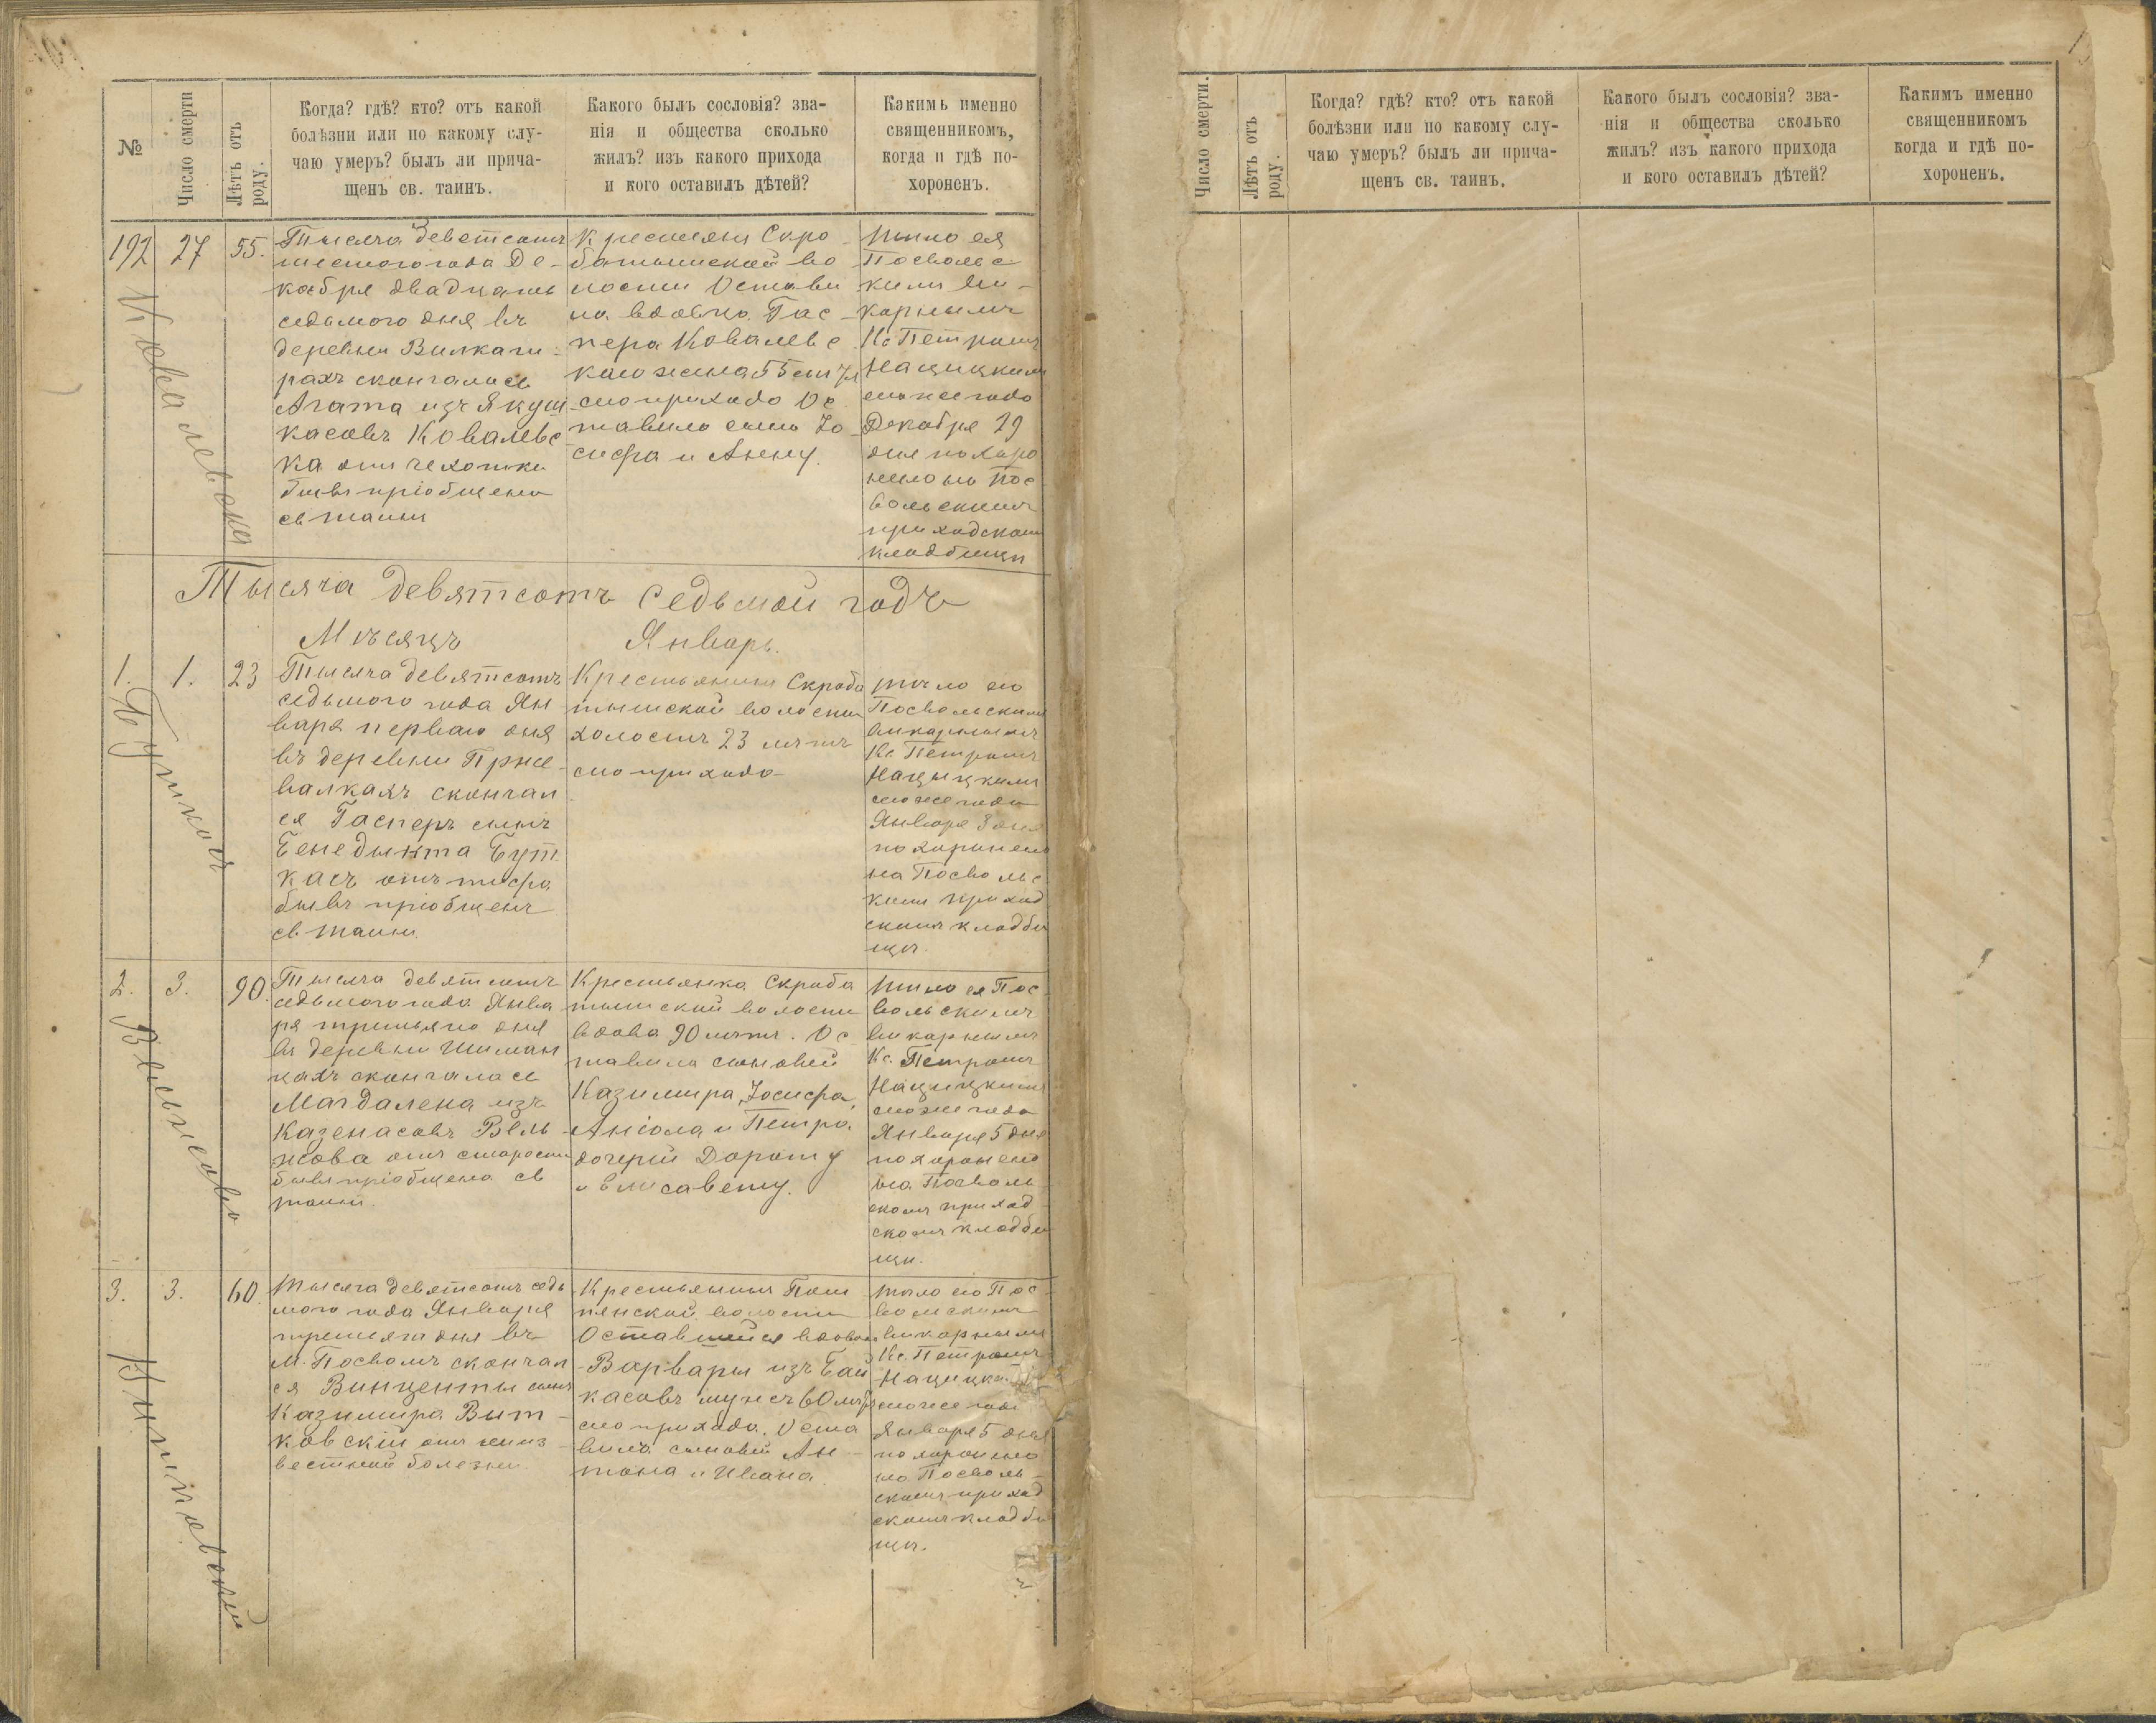 №
Число смерти
Лѣтъ отъ
роду.
Когда? гдѣ? кто? отъ какой
болѣзни или по какому слу-
чаю умеръ? былъ ли прича-
щенъ св. таинъ.
Какого былъ сословія? зва-
нія и общества сколько
жилъ? изъ какого прихода
и кого оставилъ дѣтей?
Какимь именно
священникомъ,
когда и гдѣ по-
хороненъ.
192
27
55.
Ковалевска
Тысяча деветсотъ
шестого года Де-
кабря двадцать
седьмого дня въ
деревни Вилкаги-
рахъ скончалась
Агата изъ Якуш
касовъ Ковалевс
ка отъ чехотки
бывъ пріобщена
св таинъ
Скро-
батышской во
лости Остави
ла вдовца Гас-
пера Ковалевс
каго жена 55 лѣтъ
сего прихода Ос
тавила сына Іо-
сифа и Анну.
тѣло ея
Посвольс
кимъ ви-
карнымъ
Кс Петромъ
Нацицкимъ
сего же года
Декабря 29
дня похоро
нено на Пос
вольскимъ
приходскомъ
кладбищи
Тысяча девятсотъ седьмой годъ
Мѣсяцъ Январь.
1.
1.
23
Буткась
Тысяча девятсотъ
седьмого года Ян
варя перваго дня
въ деревни Прже-
валкахъ скончал
ся Гасперъ сынъ
Бенедыкта Бут
касъ отъ тифа
бывъ пріобщенъ
св. таинъ.
Крестьянинъ Скроба
тышской волости
холостъ 23 лѣтъ
сего прихода
тѣло его
Посвольскимъ
викарнымъ
Кс. Петромъ
Нацицкимъ
сего же года
Января 3 дня
похоронено
на Посвольс
кимъ приход
скимъ кладби
щѣ.
2.
3.
90.
Вельжова
Тысяча девятсотъ
седьмого года Янва
ря третьяго дня
въ деревни Шиман
цахъ скончалась
Магдалена изъ
Казенасовъ Вель-
жова отъ старости
бывъ пріобщена св
таинъ.
Крестьянка Скроба
тышской волости
вдова 90 лѣтъ. Ос
тавила сыновей
Казимира, Іосифа,
Ансола и Петра
дочерей Дороту
и Елисавету.
тѣло ея Пос
вольскимъ
викарнымъ
Кс. Петромъ
Нацицкимъ
сего же года
Января 5 дня
похоронено
на Посволь
скомъ приход
скомъ кладби
щи.
3.
3.
60.
Витковскій
Тысяча девятсотъ седь
мого года Января
третьяго дня въ
м. Посволѣ скончал
ся Винценты сынъ
Казимира Вит-
ковскій отъ неиз
вестной болезни.
Крестьянинъ Пом
пянской волости
Оставшейся вдовы
Варвары изъ Бай
касовъ мужъ 60 лѣтъ
сего прихода. Оста
вила сыновей Ан-
тона и Ивана.
тѣло его Пос-
вольскимъ
викарнымъ
Кс. Петромъ
сего же года
Января 5 дня
похоронено
на Посволь-
скомъ приход
скомъ кладби
щѣ.
Число смерти.
Лѣтъ отъ
роду.
Когда? гдѣ? кто? отъ какой
болѣзни или по какому слу-
чаю умеръ? былъ ли прича-
щенъ св. таинъ.
Какого былъ сословія? зва-
нія и общества сколько
жилъ? изъ какого прихода
и кого оставилъ дѣтей?
Какимъ именно
священникомъ
когда и гдѣ по-
хороненъ.